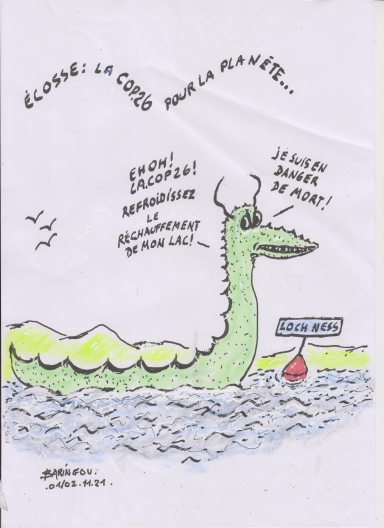 ÉCOSSE: LA COP26 POUR LA PLANÉTE...
EHOH!
LA COP26!
REFROIDISSEZ
LE
RÉCHAUFFEMENT
DE MON LAC!
JE SUIS EN
DANGER
DE MORT!
LOCH NESS
BARINGOU.
01/02.11.21